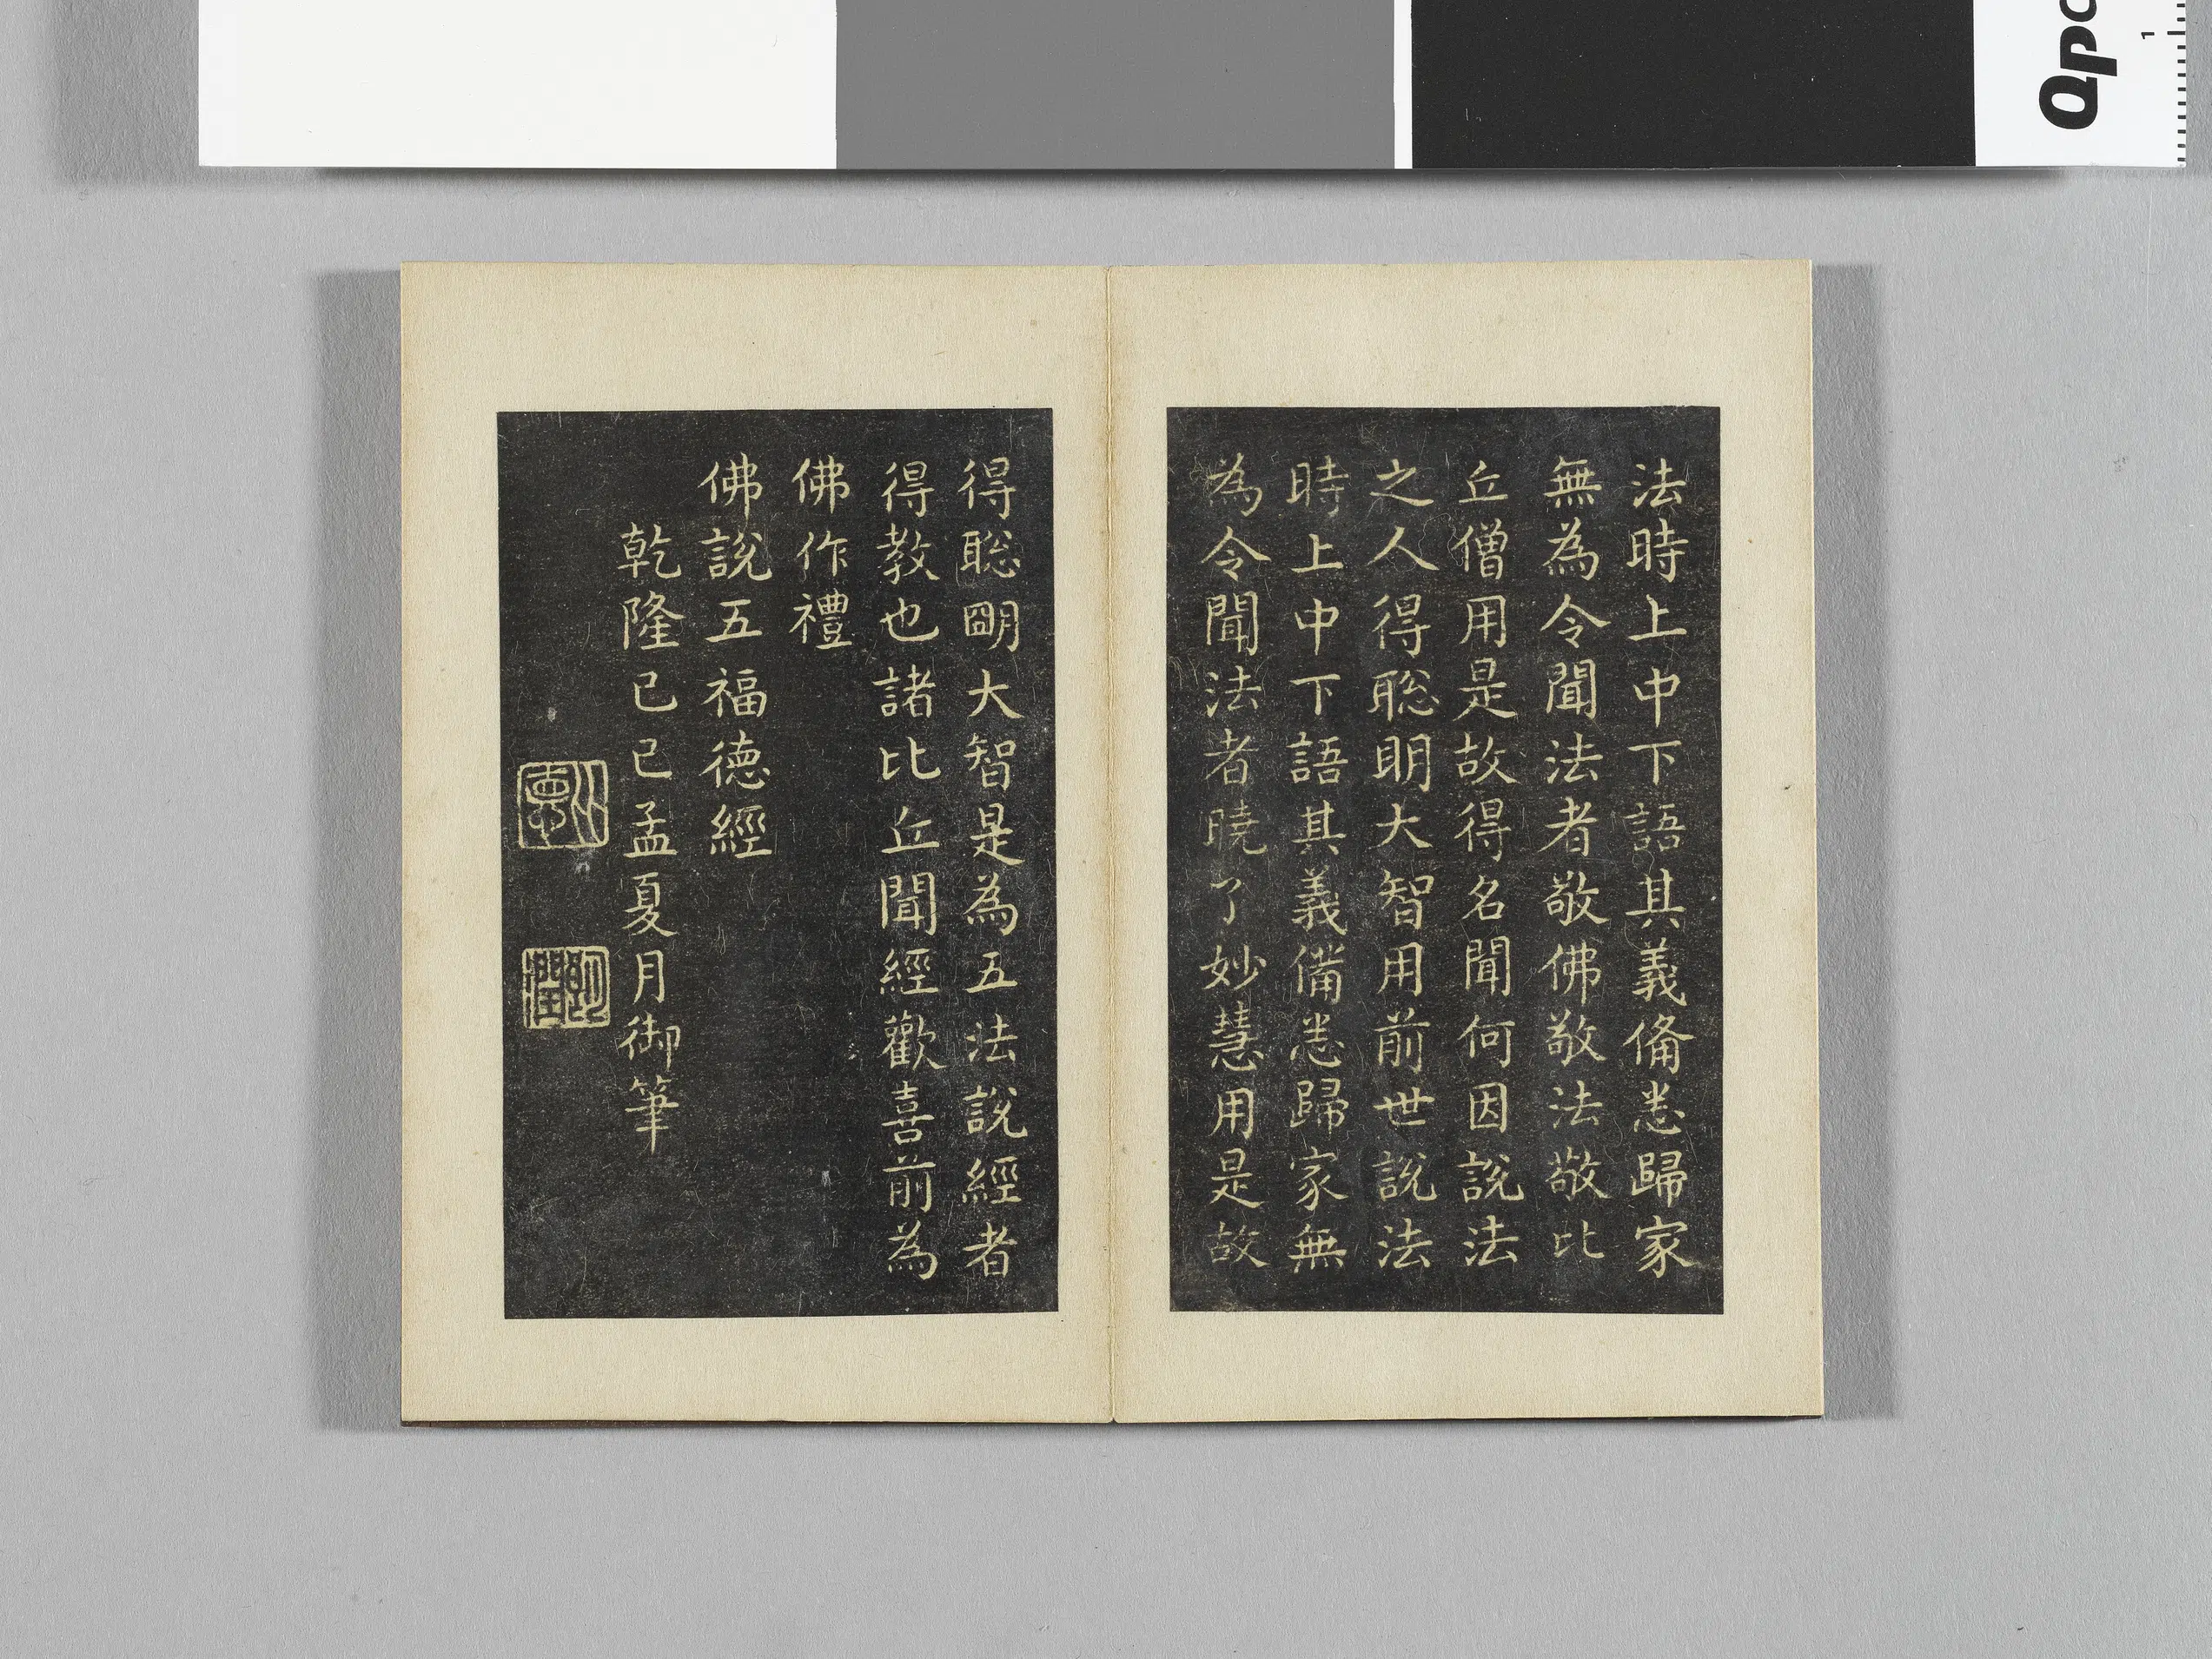 法時上中下語其義備悉歸家
無為令聞法者敬佛敬法敬比
丘僧用是故得名聞何因說法
之人得聡明大智用前世說法
時上中下語其義備悉歸家無
為令聞法者曉了妙慧用是故
得聡朙大智是為五法說經者
得教也諸比丘聞經歡喜前為
佛作禮
佛說五福德經
乾隆己巳孟夏月御筆